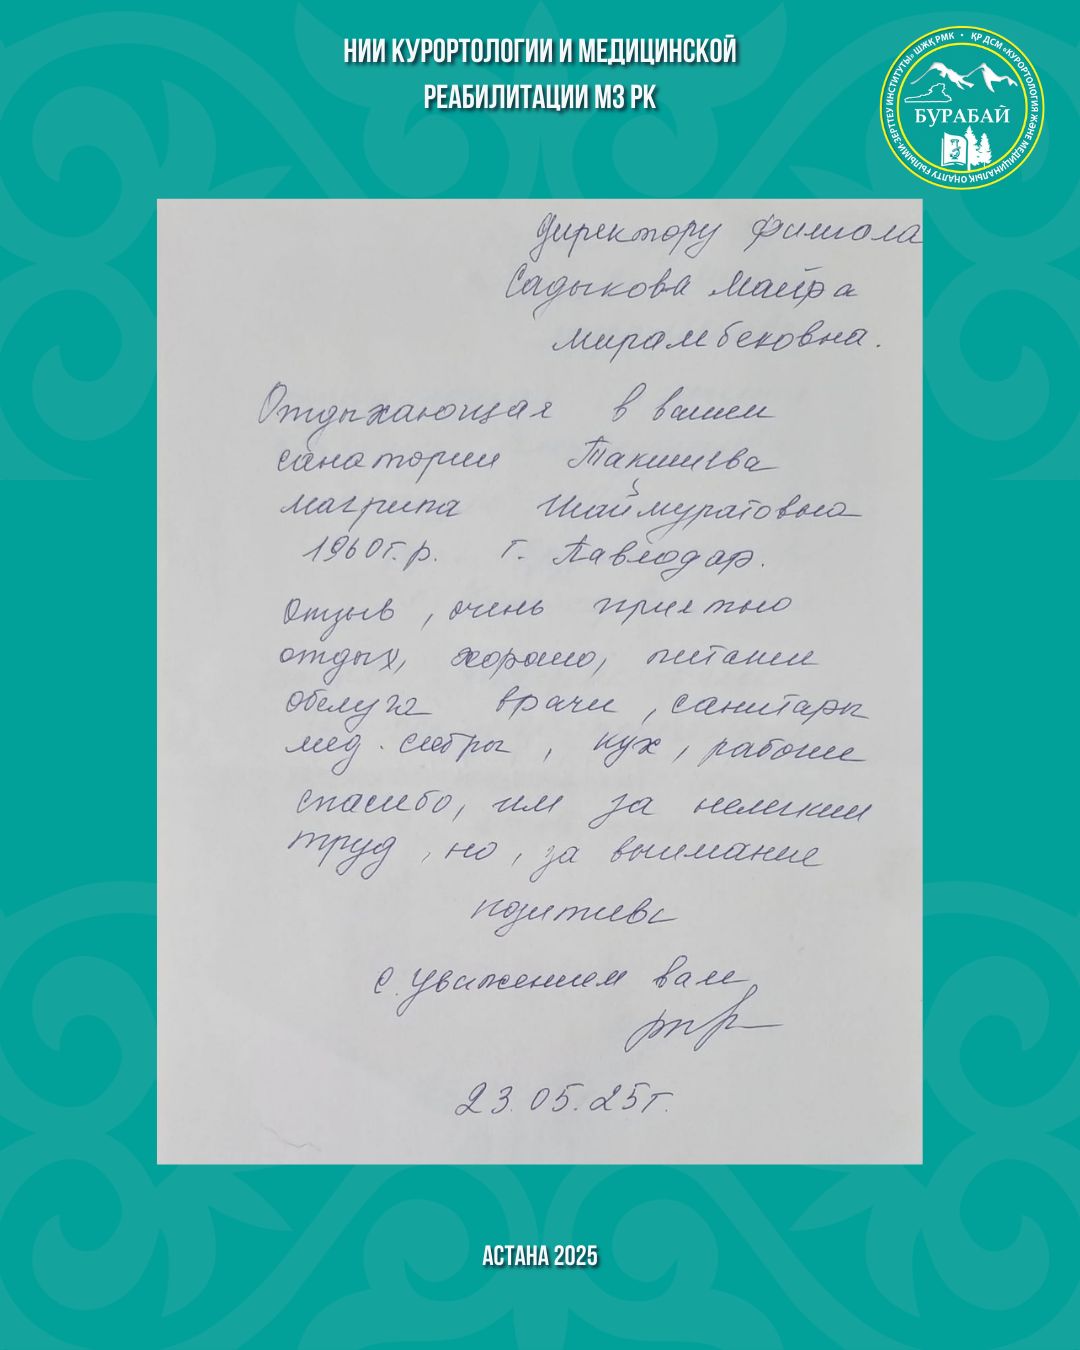 НИИ КУРОРТОЛОГИИ И МЕДИЦИНСКОЙ
РЕАБИЛИТАЦИИ МЗ РК
ҚР ДСМ «КУРОРТОЛОГИЯ ЖӘНЕ МЕДИЦИНАЛЫҚ ОҢАЛТУ ҒЫЛЫМИ-ЗЕРТТЕУ ИНСТИТУТЫ» ШЖҚ РМК
БУРАБАЙ
Директору Филиала
Садыкова Майра
Мирамбековна.
Отдыхающая в вашем
санатории Такишева
Магрипа Шаймуратовна
1960г.р. г. Павлодар.
Отзыв, очень приятно
отдых, хорошо, питание
обслуга врачи, санитары
мед. сестры, кух, рабочие
спасибо, им за нелегкий
труд, но, за внимание
позитив
С. уважением вам
23.05.25г.
АСТАНА 2025